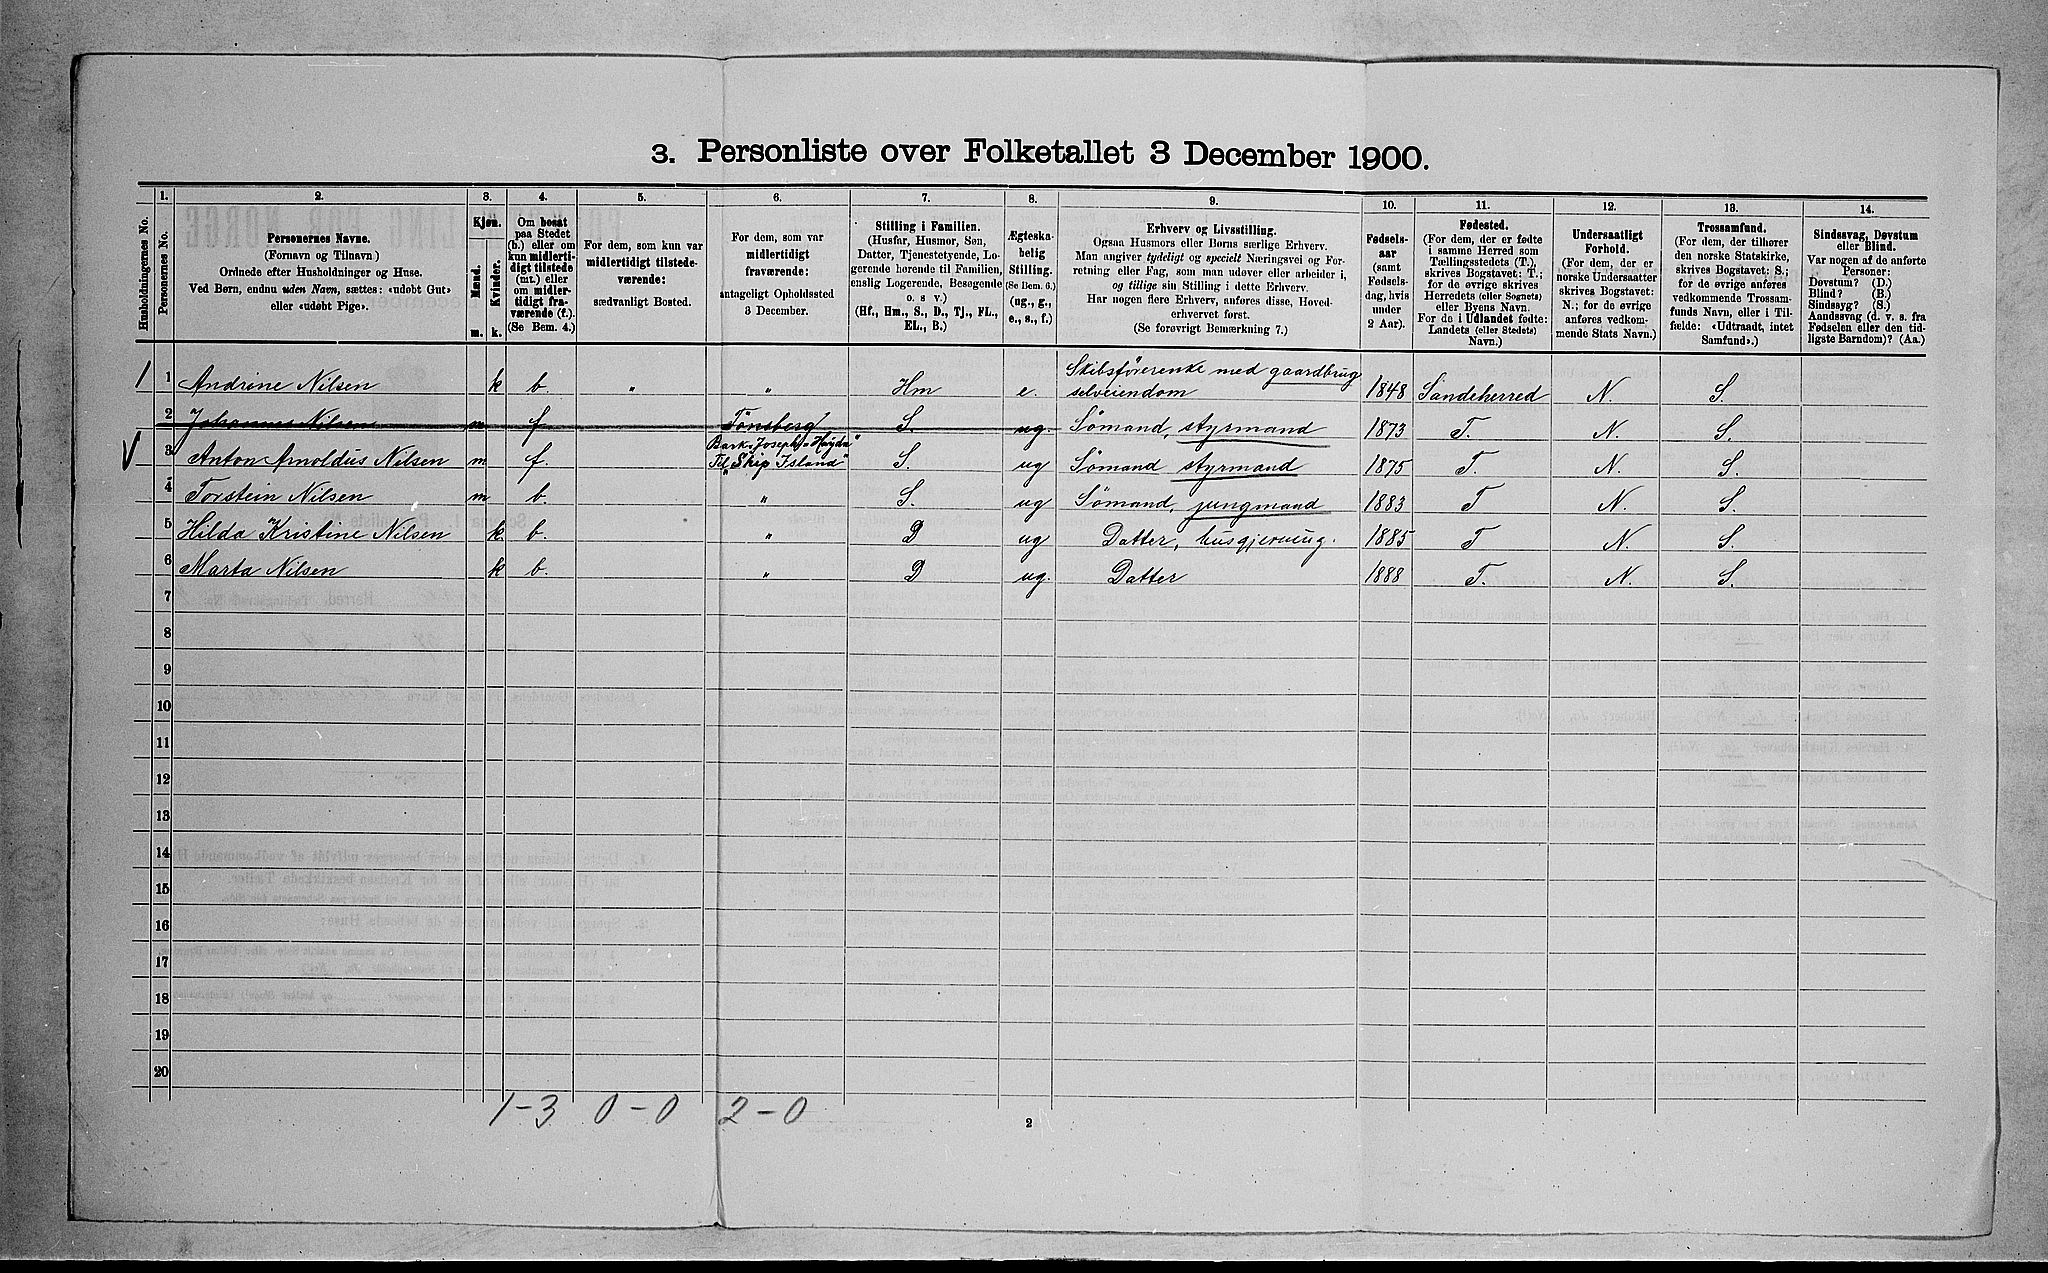 3. Personliste over Folketallet 3 December 1900.
Husholdningernes No.
1. Personernes No.
2. Personernes Navne.
(Fornavn og Tilnavn)
Ordnede efter Husholdninger og Huse.
Ved Børn, endnu uden Navn, sættes: «udøbt Gut»
eller «udøbt Pige».
3. Kjøn.
Mænd. Kvinder.
m. k.
4.
Om bosat
paa Stedet
(b.) eller om
kun midlertidigt
tilstede
(mt.) eller
om midlertidigt
fraværende (f.).
(Se Bem. 4.)
5.
For dem, som kun var
midlertidigt tilstedeværende:
sædvanligt Bosted.
6.
For dem, som var
midlertidigt
fraværende:
antageligt Opholdssted
3 December.
7.
Stilling i Familien.
(Husfar, Husmor, Søn,
Datter, Tjenestetyende, Logerende
hørende til Familien,
enslig Logerende, Besøgende
o. s v.)
(Hf., Hm., S., D., Tj., FL.,
EL., B.)
8.
Ægteskabelig
Stilling.
(Se Bem. 6.)
(ug., g.,
e., s., f.)
9.
Erhverv og Livsstilling.
Ogsaa Husmors eller Børns særlige Erhverv.
Man angiver tydeligt og specielt Næringsvei og Forretning
eller Fag, som man udøver eller arbeider i,
og tillige sin Stilling i dette Erhverv.
Har nogen flere Erhverv, anføres disse, Hovederhvervet
først.
(Se forøvrigt Bemærkning 7.)
10.
Fødselsaar
(samt
Fødselsdag,
hvis
under
2 Aar).
11.
Fødested.
(For dem, der er fødte
i samme Herred som
Tællingsstedets (T.),
skrives Bogstavet: T.;
for de øvrige skrives
Herredets (eller Sognets)
eller Byens Navn.
For de i Udlandet fødte:
Landets (eller Stedets)
Navn.)
12.
Undersaatligt
Forhold.
(For dem, der er
norske Undersaatter
skrives Bogstavet:
N.; for de øvrige
anføres vedkommende
Stats Navn.)
13.
Trossamfund.
(For dem, der tilhører
den norske Statskirke,
skrives Bogstavet: S.;
for de øvrige anføres
vedkommende Trossamfunds
Navn, eller i Tilfælde:
«Udtraadt, intet
Samfund».)
14.
Sindssvag, Døvstum
eller Blind.
Var nogen af de anførte
Personer:
Døvstum? (D.)
Blind? (B.)
Sindssyg? (S.)
Aandssvag (d. v. s. fra
Fødselen eller den tidligste
Barndom)? (Aa.)
1 1 Andrine Nilsen k b. " " Hm e. Skibsførerenke med gaardbrug selveiendom 1848 Sandeherred N. S.
2 Johannes Nilsen m f Tönsberg S. ug. Sömand, styrmand 1873 T. N. S.
V 3 Anton Arnoldus Nilsen m f. Bark "Joseph Haydn" "Skip Island" S. ug Sömand styrmand 1875 T. N. S.
4 Torstein Nilsen m b. " S. ug Sömand, jungmand 1883 T N. S.
5 Hilda Kristine Nilsen k. b. " D ug Datter, husgjerning. 1885 T N. S.
6 Marta Nilsen k b. " D ug. Datter 1888 T. N. S.
7
8
9
10
11
12
13
14
15
16
17
18
19
20
1-3 0-0 2-0
2